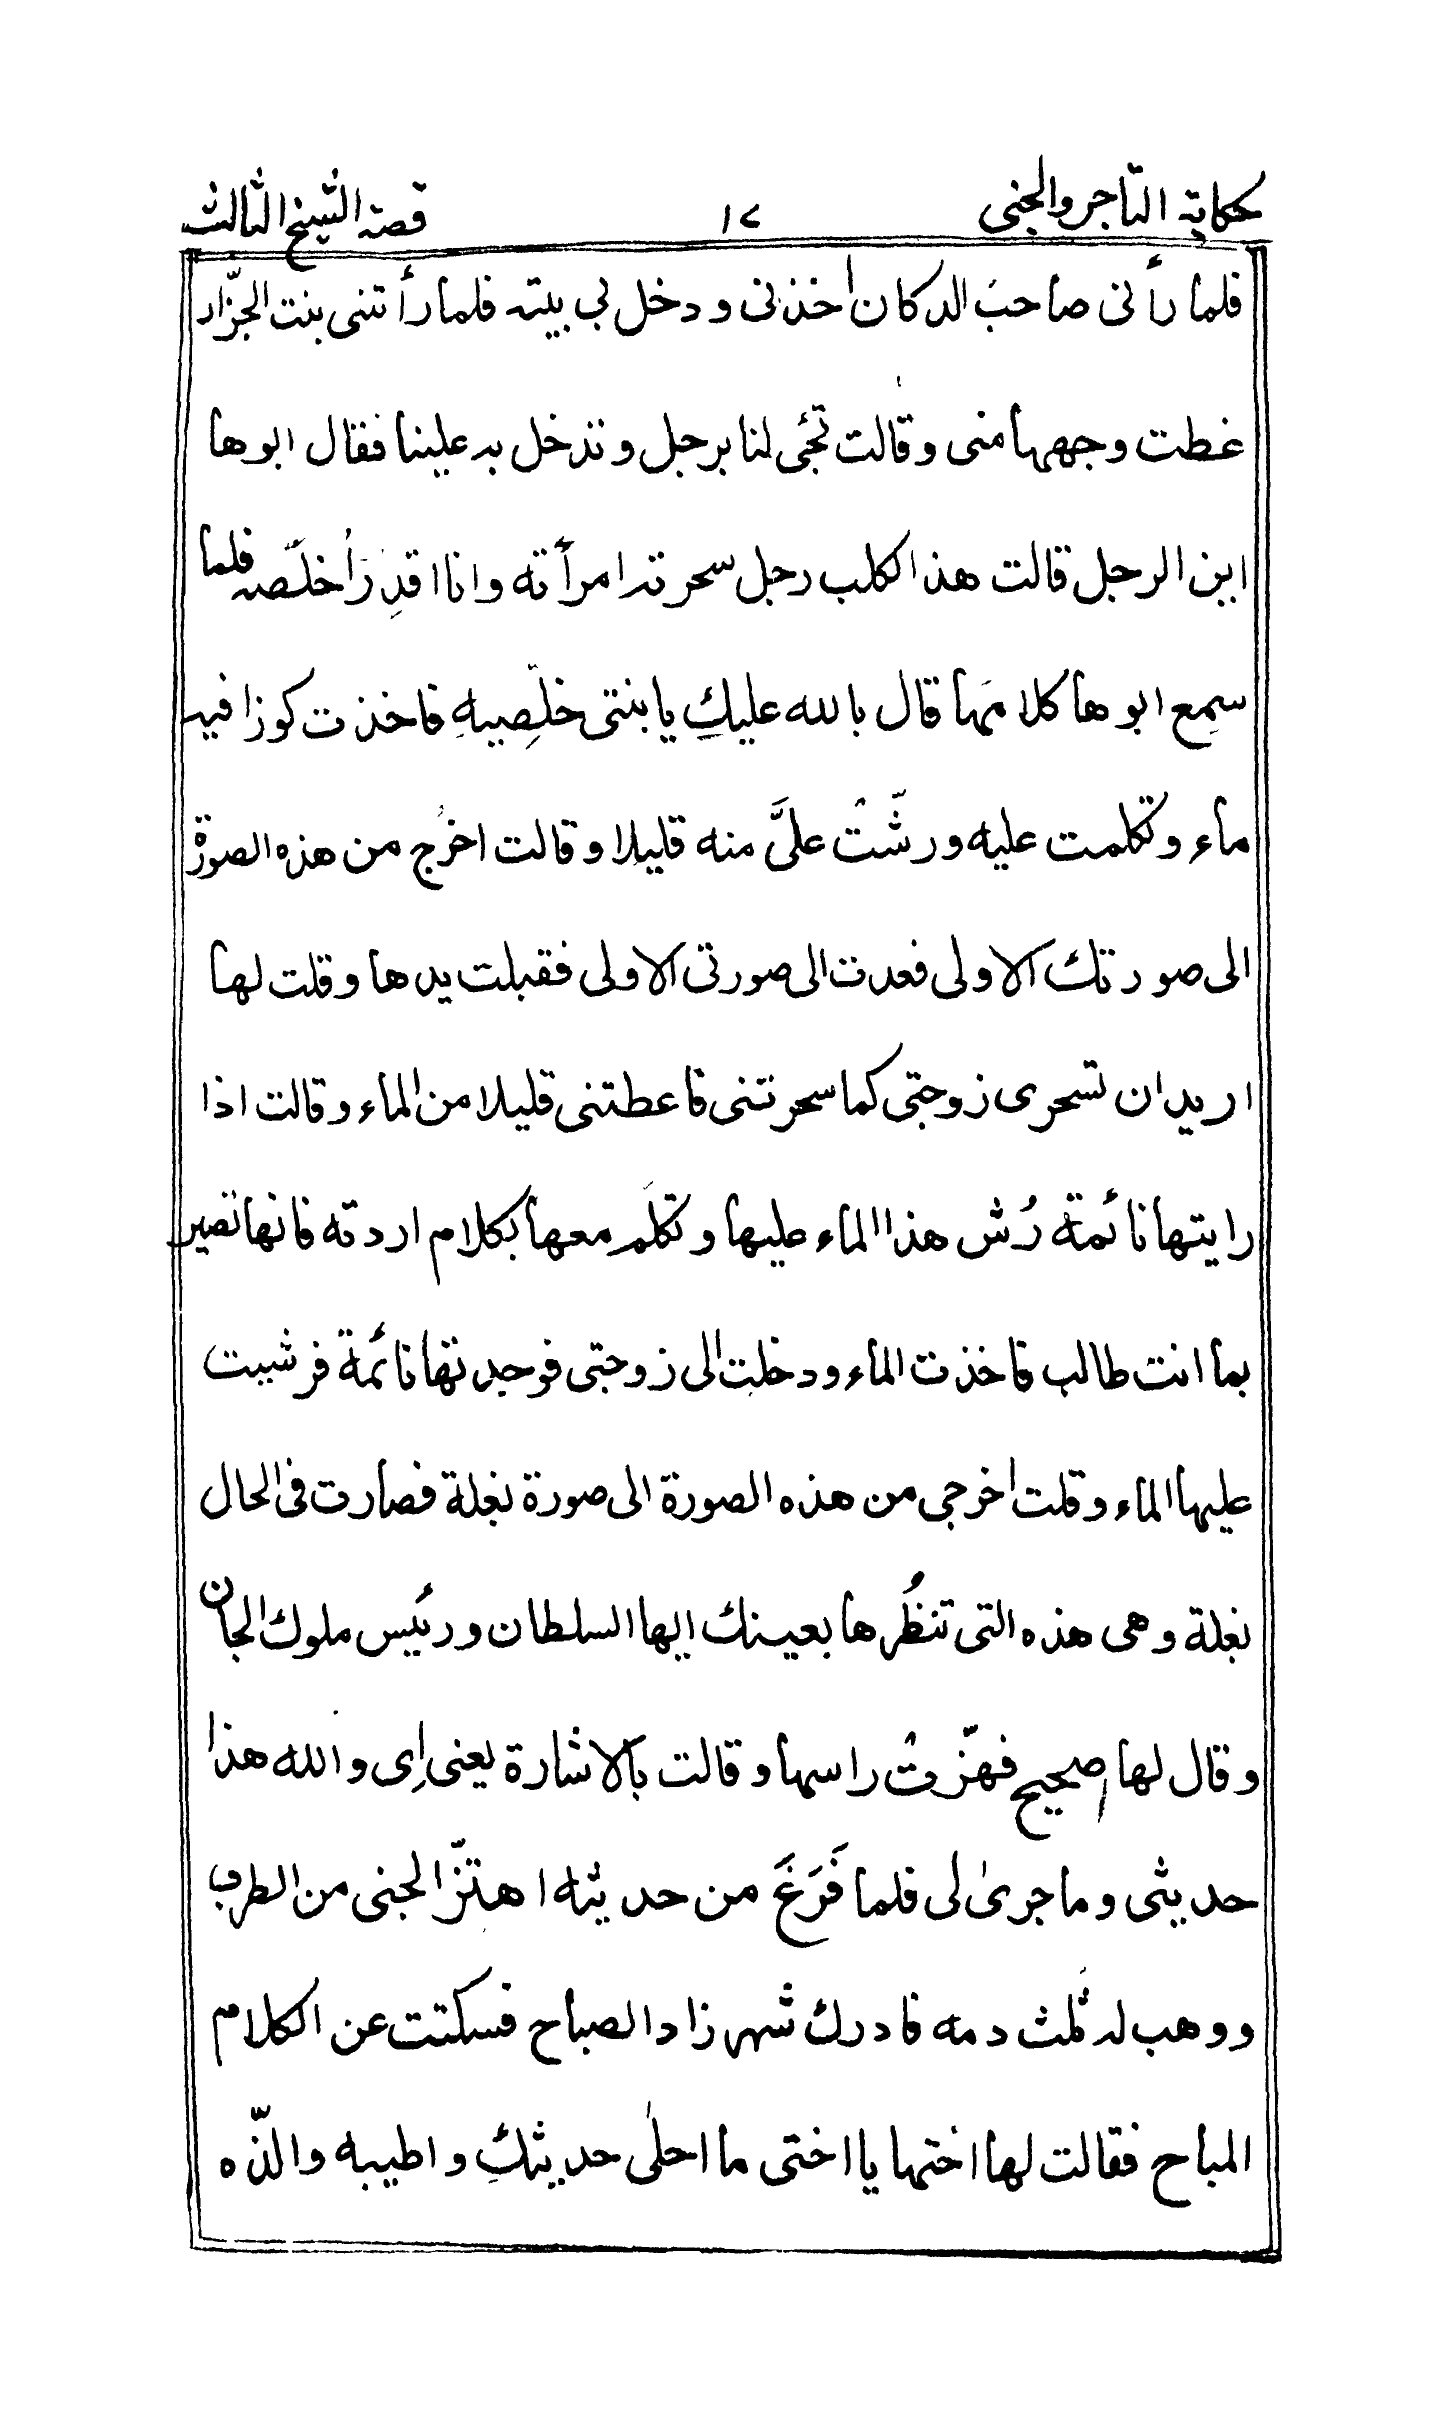 حكاية التاجر والجني ١٧ قصة الشيخ الثالث
فلما رأني صاحبَ الدكان أخذني ودخل بي بيته فلما رأتني بنت الجزّار
غطت وجهها مني وقالت تجئي لنا برجل وتدخل به علينا فقال ابوها
اين الرجل قالت هذا الكلب رجل سحرته امرأته وانا اقدِر أخلّصه فلما
سمِع ابوها كلامَها قال بالله عليكِ يا بنتي خلّصِيهِ فاخذت كوزا فيه
ماء وتكلمت عليه ورشّتْ عليَّ منه قليلا وقالت اخرُج من هذه الصورة
الى صورتك الاولى فعدت الى صورتي الاولى فقبلت يدها وقلت لها
اريد ان تسحرى زوجتي كما سحرتني فاعطتني قليلا من الماء وقالت اذا
رايتها نائمة رُش هذا الماء عليها وتكلَم معها بكلام اردته فانها تصير
بما انت طالب فاخذت الماء ودخلت الى زوجتى فوجدتها نائمة فرشيت
عليها الماء وقلت أخرجي من هذه الصورة الى صورة بغلة فصارت فى الحال
بغلة وهى هذه التي تنظُرها بعينك ايها السلطان ورئيس ملوك الجان
وقال لها اصحيح فهزّتْ راسها وقالت بالاشارة يعني اِى والله هذا
حديثى وما جرىٰ لى فلما فَرَغَ من حديثه اهتزّ الجنى من الطرب
ووهب له ثُلث دمه فادرك شهرزاد الصباح فسكتت عن الكلام
المباح فقالت لها اختها يا اختى ما احلٰى حديثكِ واطيبه والذّه